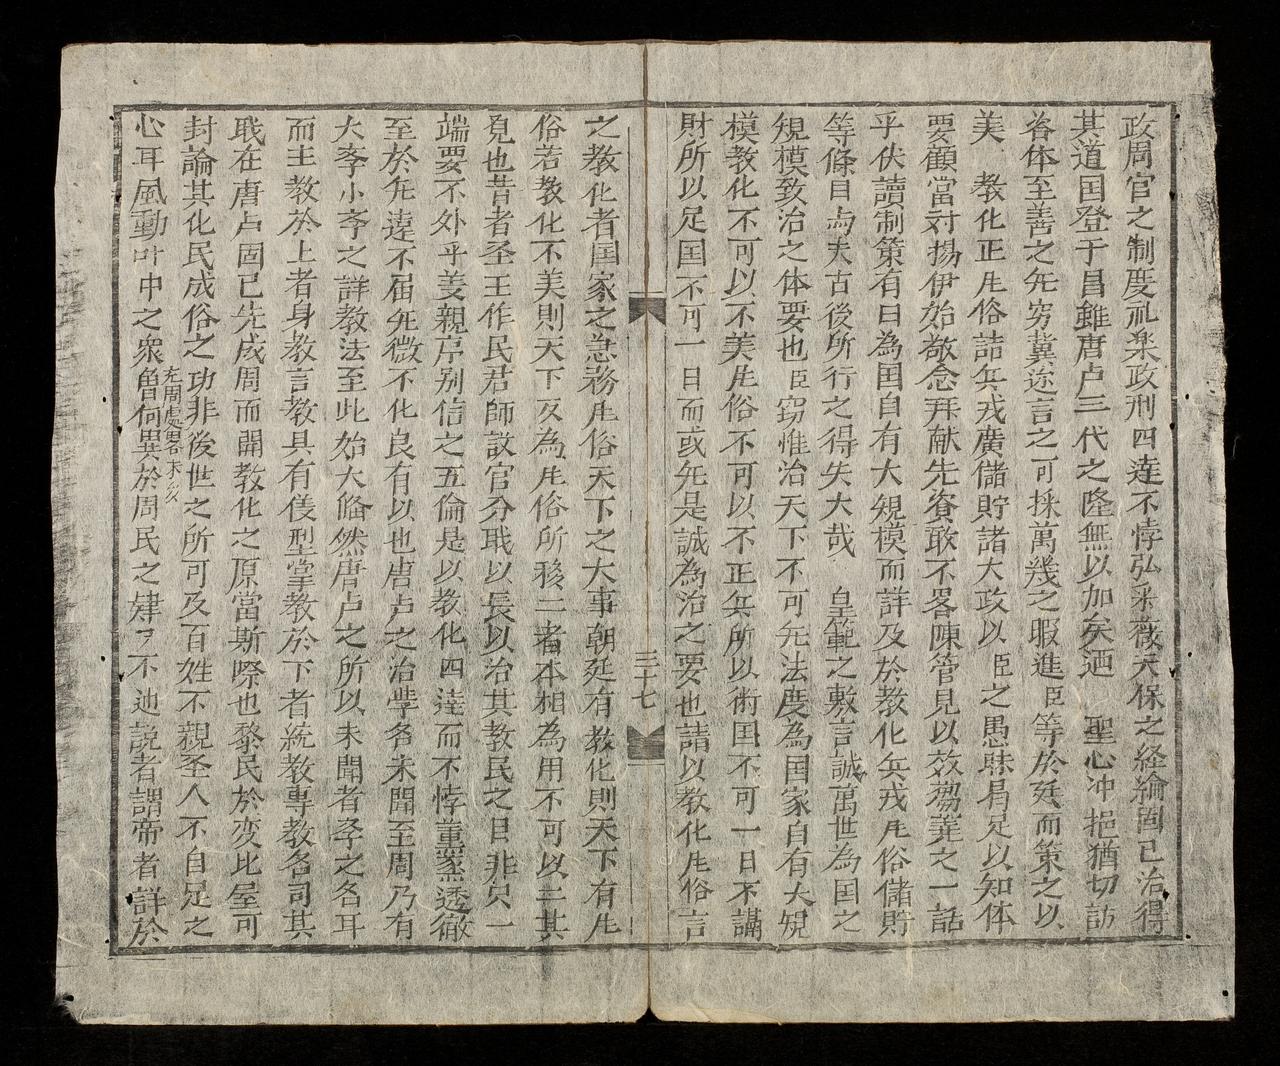 政周官之制度礼楽政刑四達不悖弘采薇天保之経綸固已治得
其道囯登于昌雖唐卢三代之隆無以加矣廼　聖心冲挹猶切訪
咨体至善之旡穷冀迩言之可採萬幾之暇進臣等於廷而策之以
美　教化正風俗詰兵戎廣儲貯諸大政以臣之愚昧曷足以知体
要顧當対揚伊始敬念拜献先資敢不畧陳管見以效蒭蕘之一話
乎伏讀制策有曰為囯自有大規模而詳及於教化兵戎風俗儲貯
等條目与夫古後所行之得失大哉　皇範之敷言誠萬世為囯之
規模致治之体要也臣窃惟治天下不可旡法度為囯家自有大規
模教化不可以不美風俗不可以不正兵所以衛囯不可一日不講
財所以足囯不可一日而或旡是誠為治之要也請以教化風俗言
三十七
之教化者囯家之急務風俗天下之大事朝廷有教化則天下有風
俗若教化不美則天下反為風俗所移二者本相為用不可以二其
見也昔者圣王作民君師設官分职以長以治其教民之目非只一
端要不外乎姜親序别信之五倫是以教化四達而不悖薰蒸透徹
至於旡遠不届旡微不化良有以也唐卢之治學各未聞至周乃有
大斈小斈之詳教法至此始大俻然唐卢之所以未聞者斈之各耳
而主教於上者身教言教具有仪型掌教於下者統教專教各司其
职在唐卢固已先成周而開教化之原當斯際也黎民於变比屋可
封論其化民成俗之功非後世之所可及百姓不親圣人不自足之
心耳風動叶中之衆曾何異於周民之肄々不迪説者謂帝者詳於